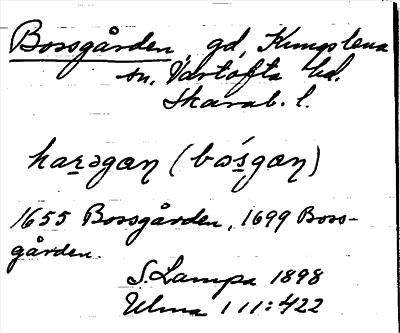 Bossgården, gd, Kungslena
sn, Vartofta hd.
Skarab. l.
harəgaɲ (bósgaɲ)
1655 Bossgården, 1699 Boss-
gården.
S. Lampa 1898
Ulma 111:422